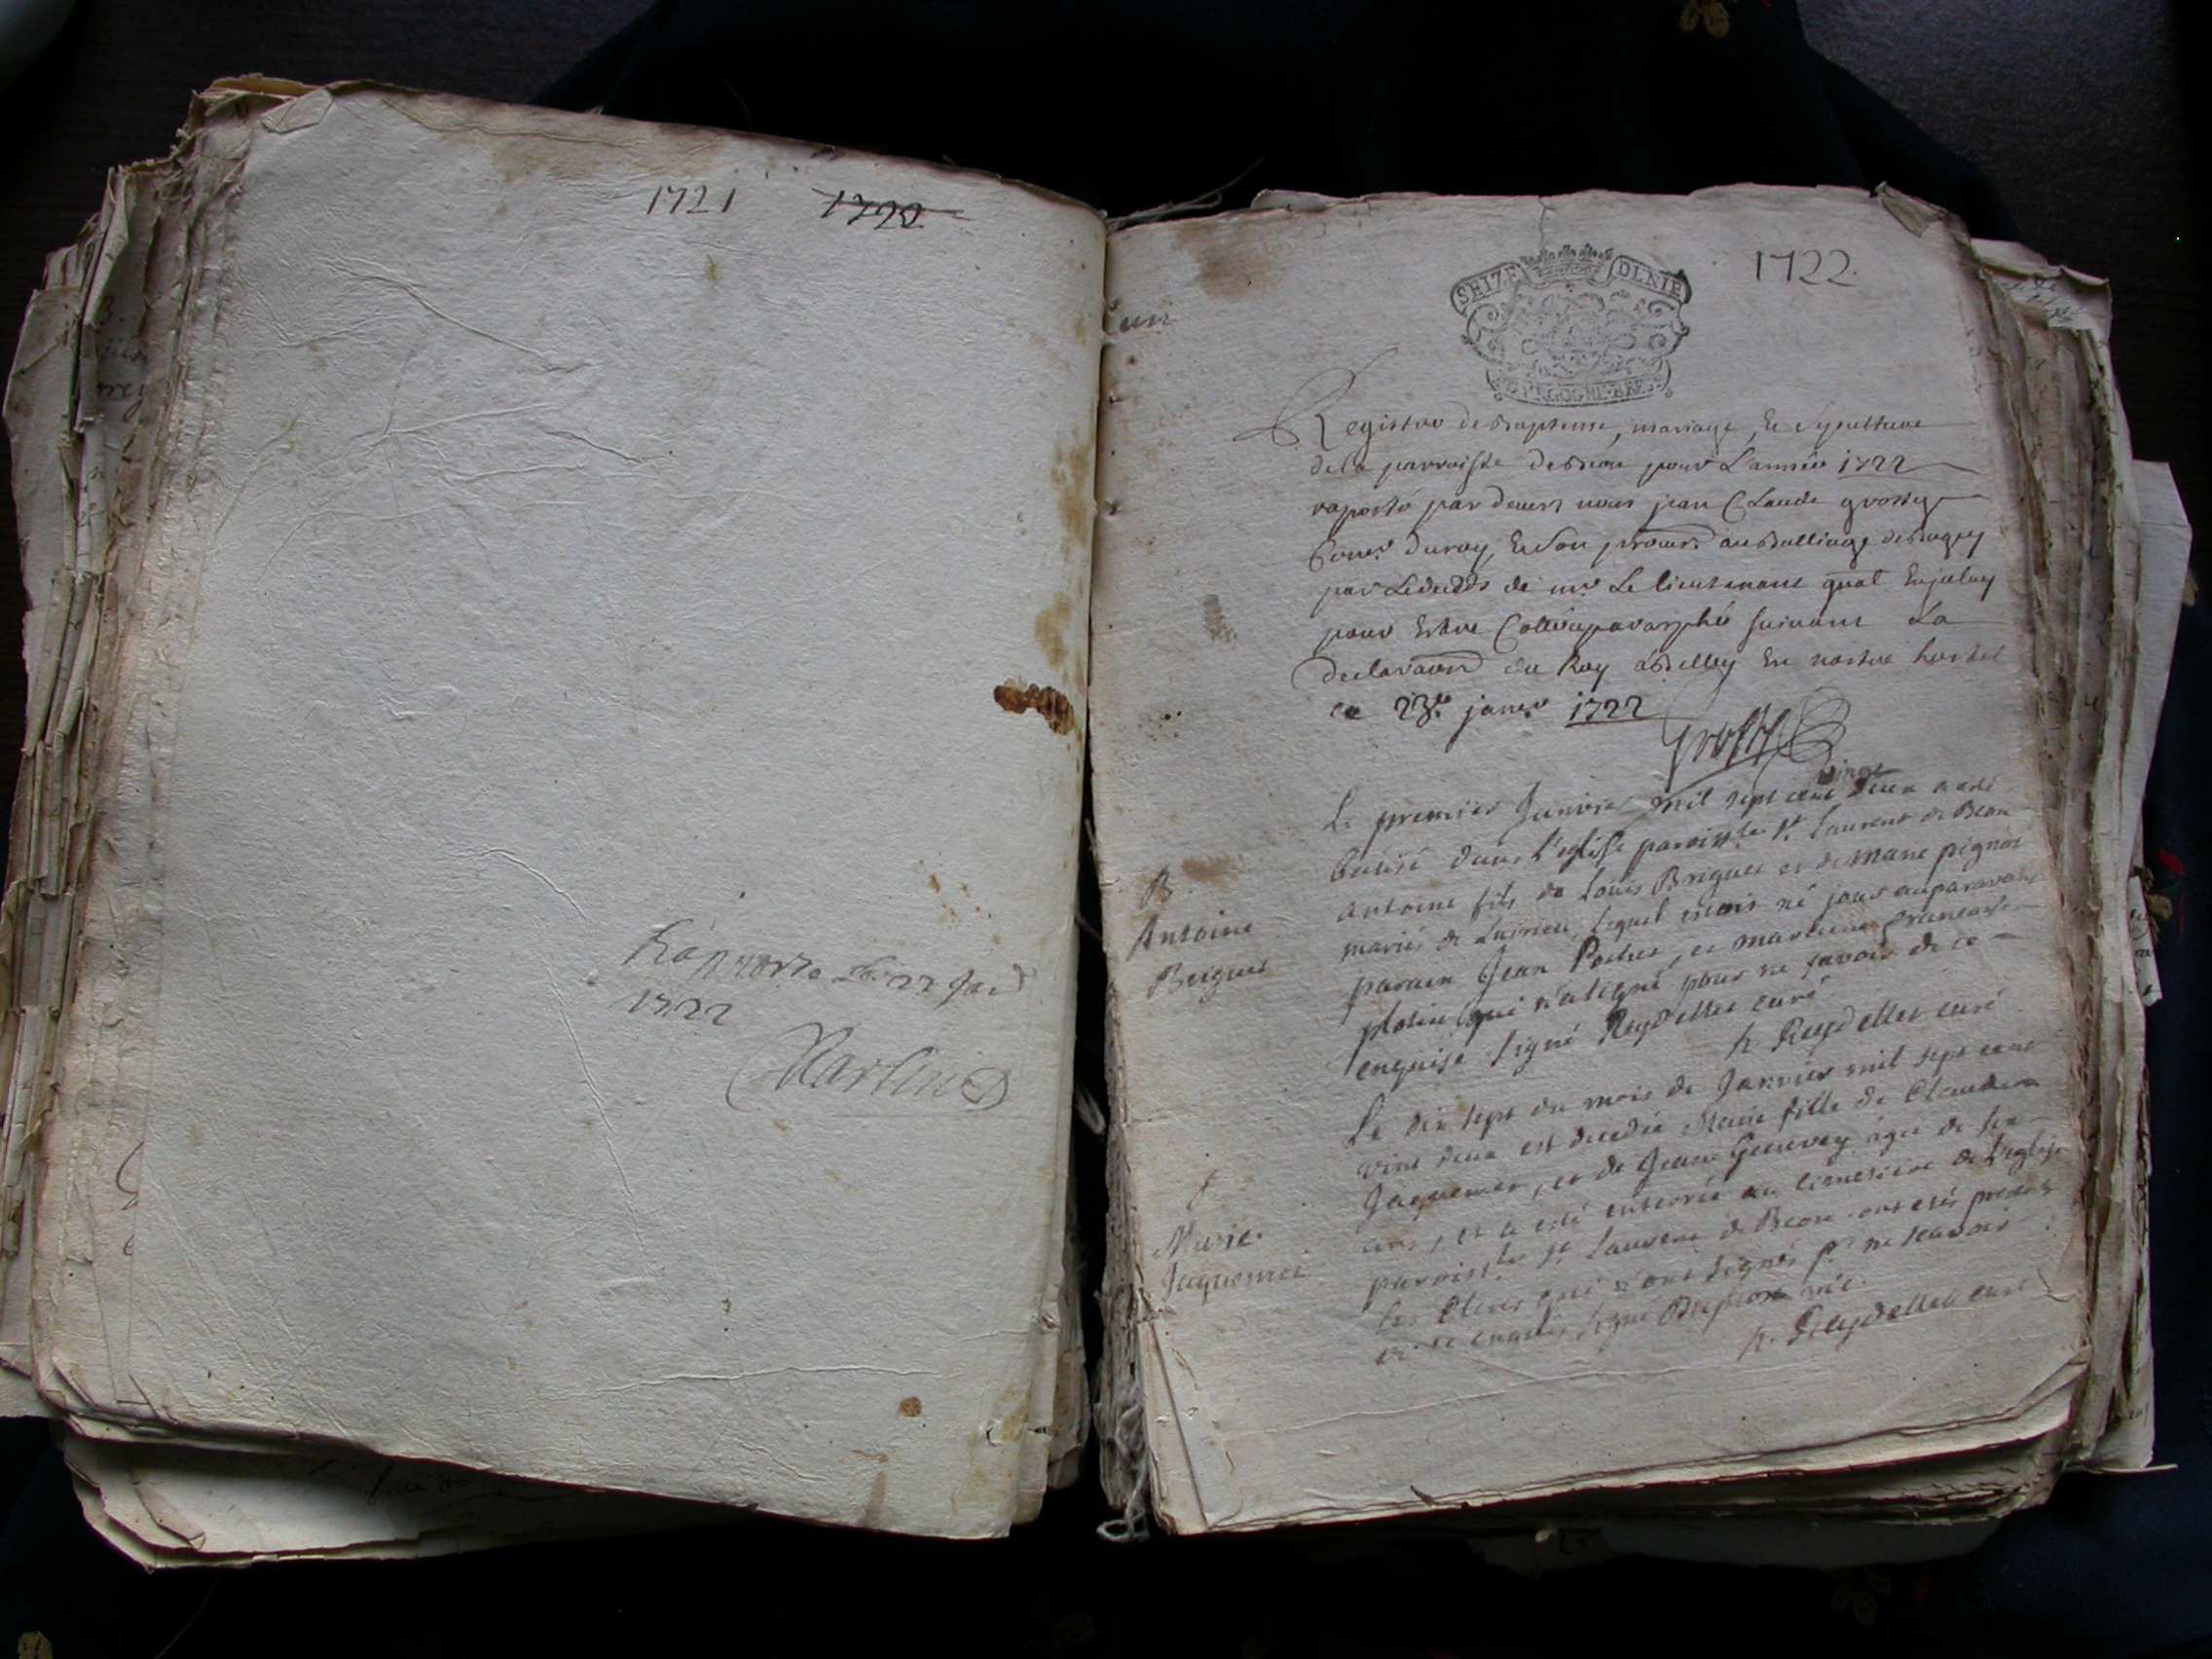 1721 1720
Rapporté le 22 Jan
1722
Martin
un
1722
SEIZE DENIE
BOURGOGNE BRE
Registre de Baptesme, mariage, Et Sepulture
de la parroisse de Beon pour L'année 1722
raporté par devers nous jean Claude grossy
Coner du roy, Et son procur au Balliage de Bugey
par de mr Le lieutenant gnal
pour Estre Cotté et paraphé suivant La
declaraon du Roy à Belley En nostre hostel
ce 23e janer 1722
Grossy
vingt
Le premier Janvier mil sept cent deux a esté
batisé dans l'eglise paroissle St Laurent de Beon
B
Antoine
Briguet
antoine fils de Louis Briguet et de marie pignot
mariés de Luirieu, lequel estois né jour auparavant
parain Jean Pochet, et marraine francoise
plotin qui n'a signé pour ne savoir de ce
enquise signé Reydellet curé
h. Reydellet curé
Le dix sept du mois de Janvier mil sept cent
vint deux est decedée Marie fille de Claude
S
Marie
Jaquemet
Jaquemet, et de Jeane agée de
ans, et a esté enterrée au cimetiere de l'eglise
paroissle St Laurent de Beon ont estés presens
les Clercs qui n'ont signés pr ne scavoir
de ce enquis signé
h. Reydellet curé